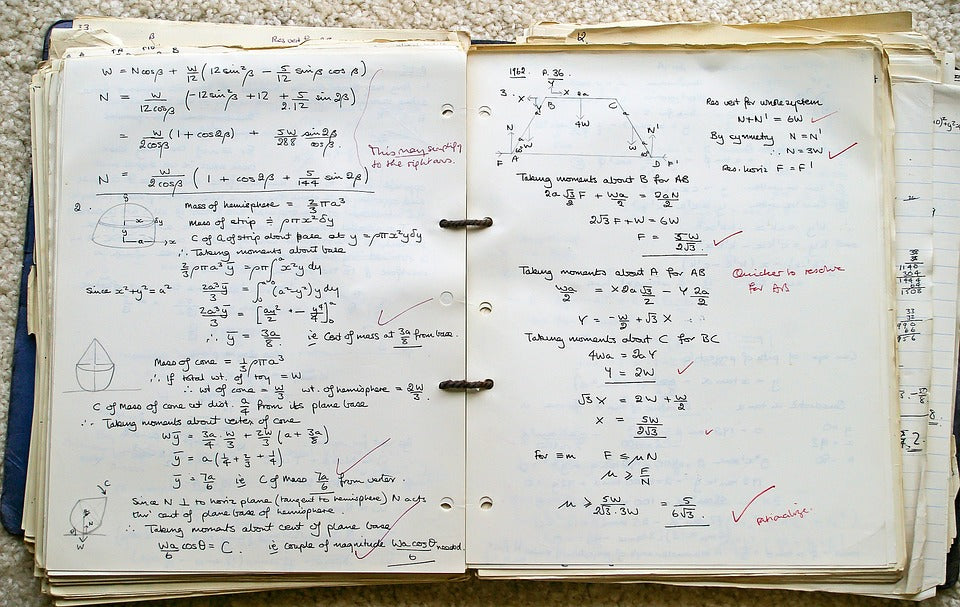 33
Res vert f
W = Ncosβ + W/12 (12sin²β − 5/12 sinβ cosβ)
N = W/12cosβ (−12sin²β + 12 + 5/2.12 sin2β)
= W/2cosβ (1 + cos2β) + 5W/288 sin2β/cosβ
This may simplify
to the right ans.
N = W/2cosβ (1 + cos2β + 5/144 sin2β)
2.
Mass of hemisphere = 2/3 πρa³
mass of strip = ρπx²δy
C of G of strip about base at y = ρπx²yδy
∴ Taking moments about base
2/3 ρπa³ȳ = ρπ∫₀ᵃ x²y dy
Since x²+y² = a² 2a³ȳ/3 = ∫₀ᵃ (a²−y²)y dy
2a³ȳ/3 = [ay²/2 − y⁴/4]₀ᵃ
∴ ȳ = 3a/8 ie Cent of mass at 3a/8 from base.
Mass of cone = 1/3 ρπa³
∴ If total wt. of toy = W
∴ wt of cone = W/3 wt. of hemisphere = 2W/3.
C of Mass of cone at dist. a/4 from its plane base
∴ Taking moments about vertex of cone
Wȳ = 3a/4 . W/3 + 2W/3 (a + 3a/8)
ȳ = a(1/4 + 2/3 + 1/4)
ȳ = 7a/6 ie C of Mass 7a/6 from vertex.
Since N ⊥ to horiz plane (tangent to hemisphere) N acts
thro' cent of plane base of hemisphere.
∴ Taking moments about cent of plane base
Wa/6 cosθ = C. ie couple of magnitude Wa cosθ/6 needed.
C
N
W
12
1962. P. 36
3.
Y
X X 2a
B C
4W
N N'
W W
F A D F'
Res vert for whole system
N+N' = 6W
By symmetry N = N'
∴ N = 3W
Res. horiz F = F'
Taking moments about B for AB
2a√3/2 F + Wa/2 = 2aN/2
2√3F + W = 6W
F = 5W/2√3
Taking moments about A for AB
Quicker to resolve
for AB
Wa/2 = X2a√3/2 − Y 2a/2
Y = −W/2 + √3 X
Taking moments about C for BC
4Wa = 2aY
Y = 2W
√3 X = 2W + W/2
X = 5W/2√3
For ≡m F ≤ μN
μ ≥ F/N
μ ≥ 5W/2√3.3W = 5/6√3
rationalise.